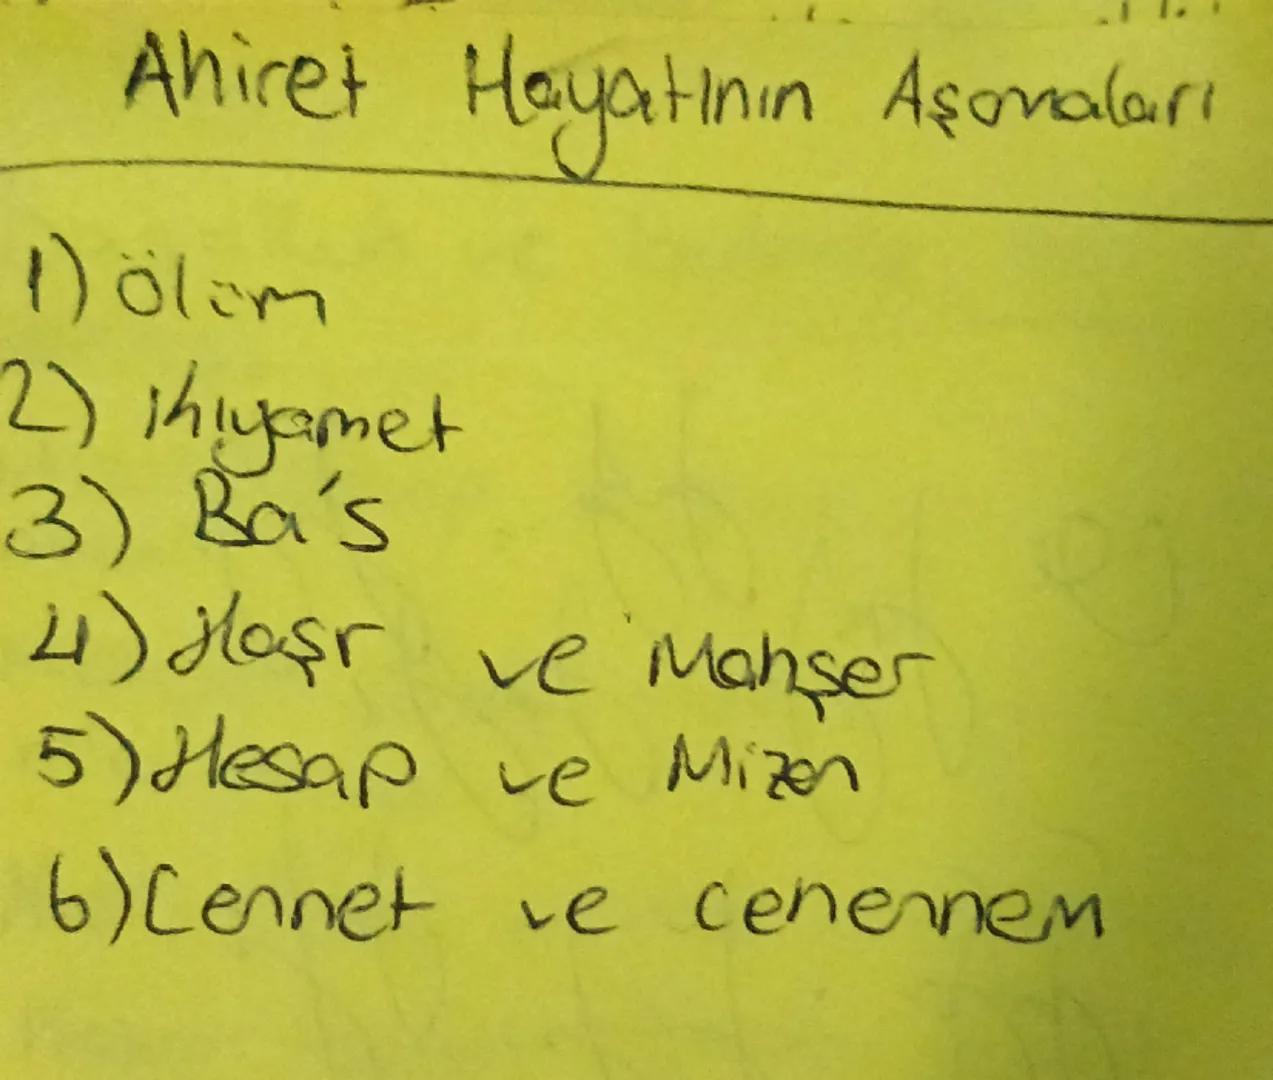 Ahiret Hayatının Aşamaları
1) Ölüm
2) Kıyamet
3) Ba's
4) Haşr ve Mahşer
5) Hesap ve Mizan
6) Cennet ve cehennem